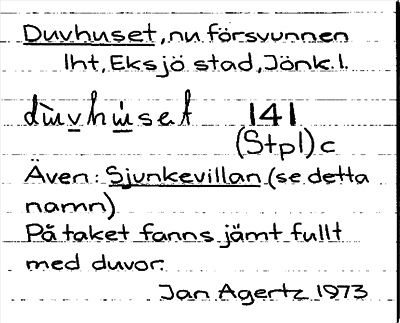 Duvhuset, nu försvunnen
lht, Eksjö stad, Jönk. l.
dùvhùset 141
(Stpl) c
Även: Sjunkevillan (se detta
namn)
På taket fanns jämt fullt
med duvor.
Jan Agertz 1973